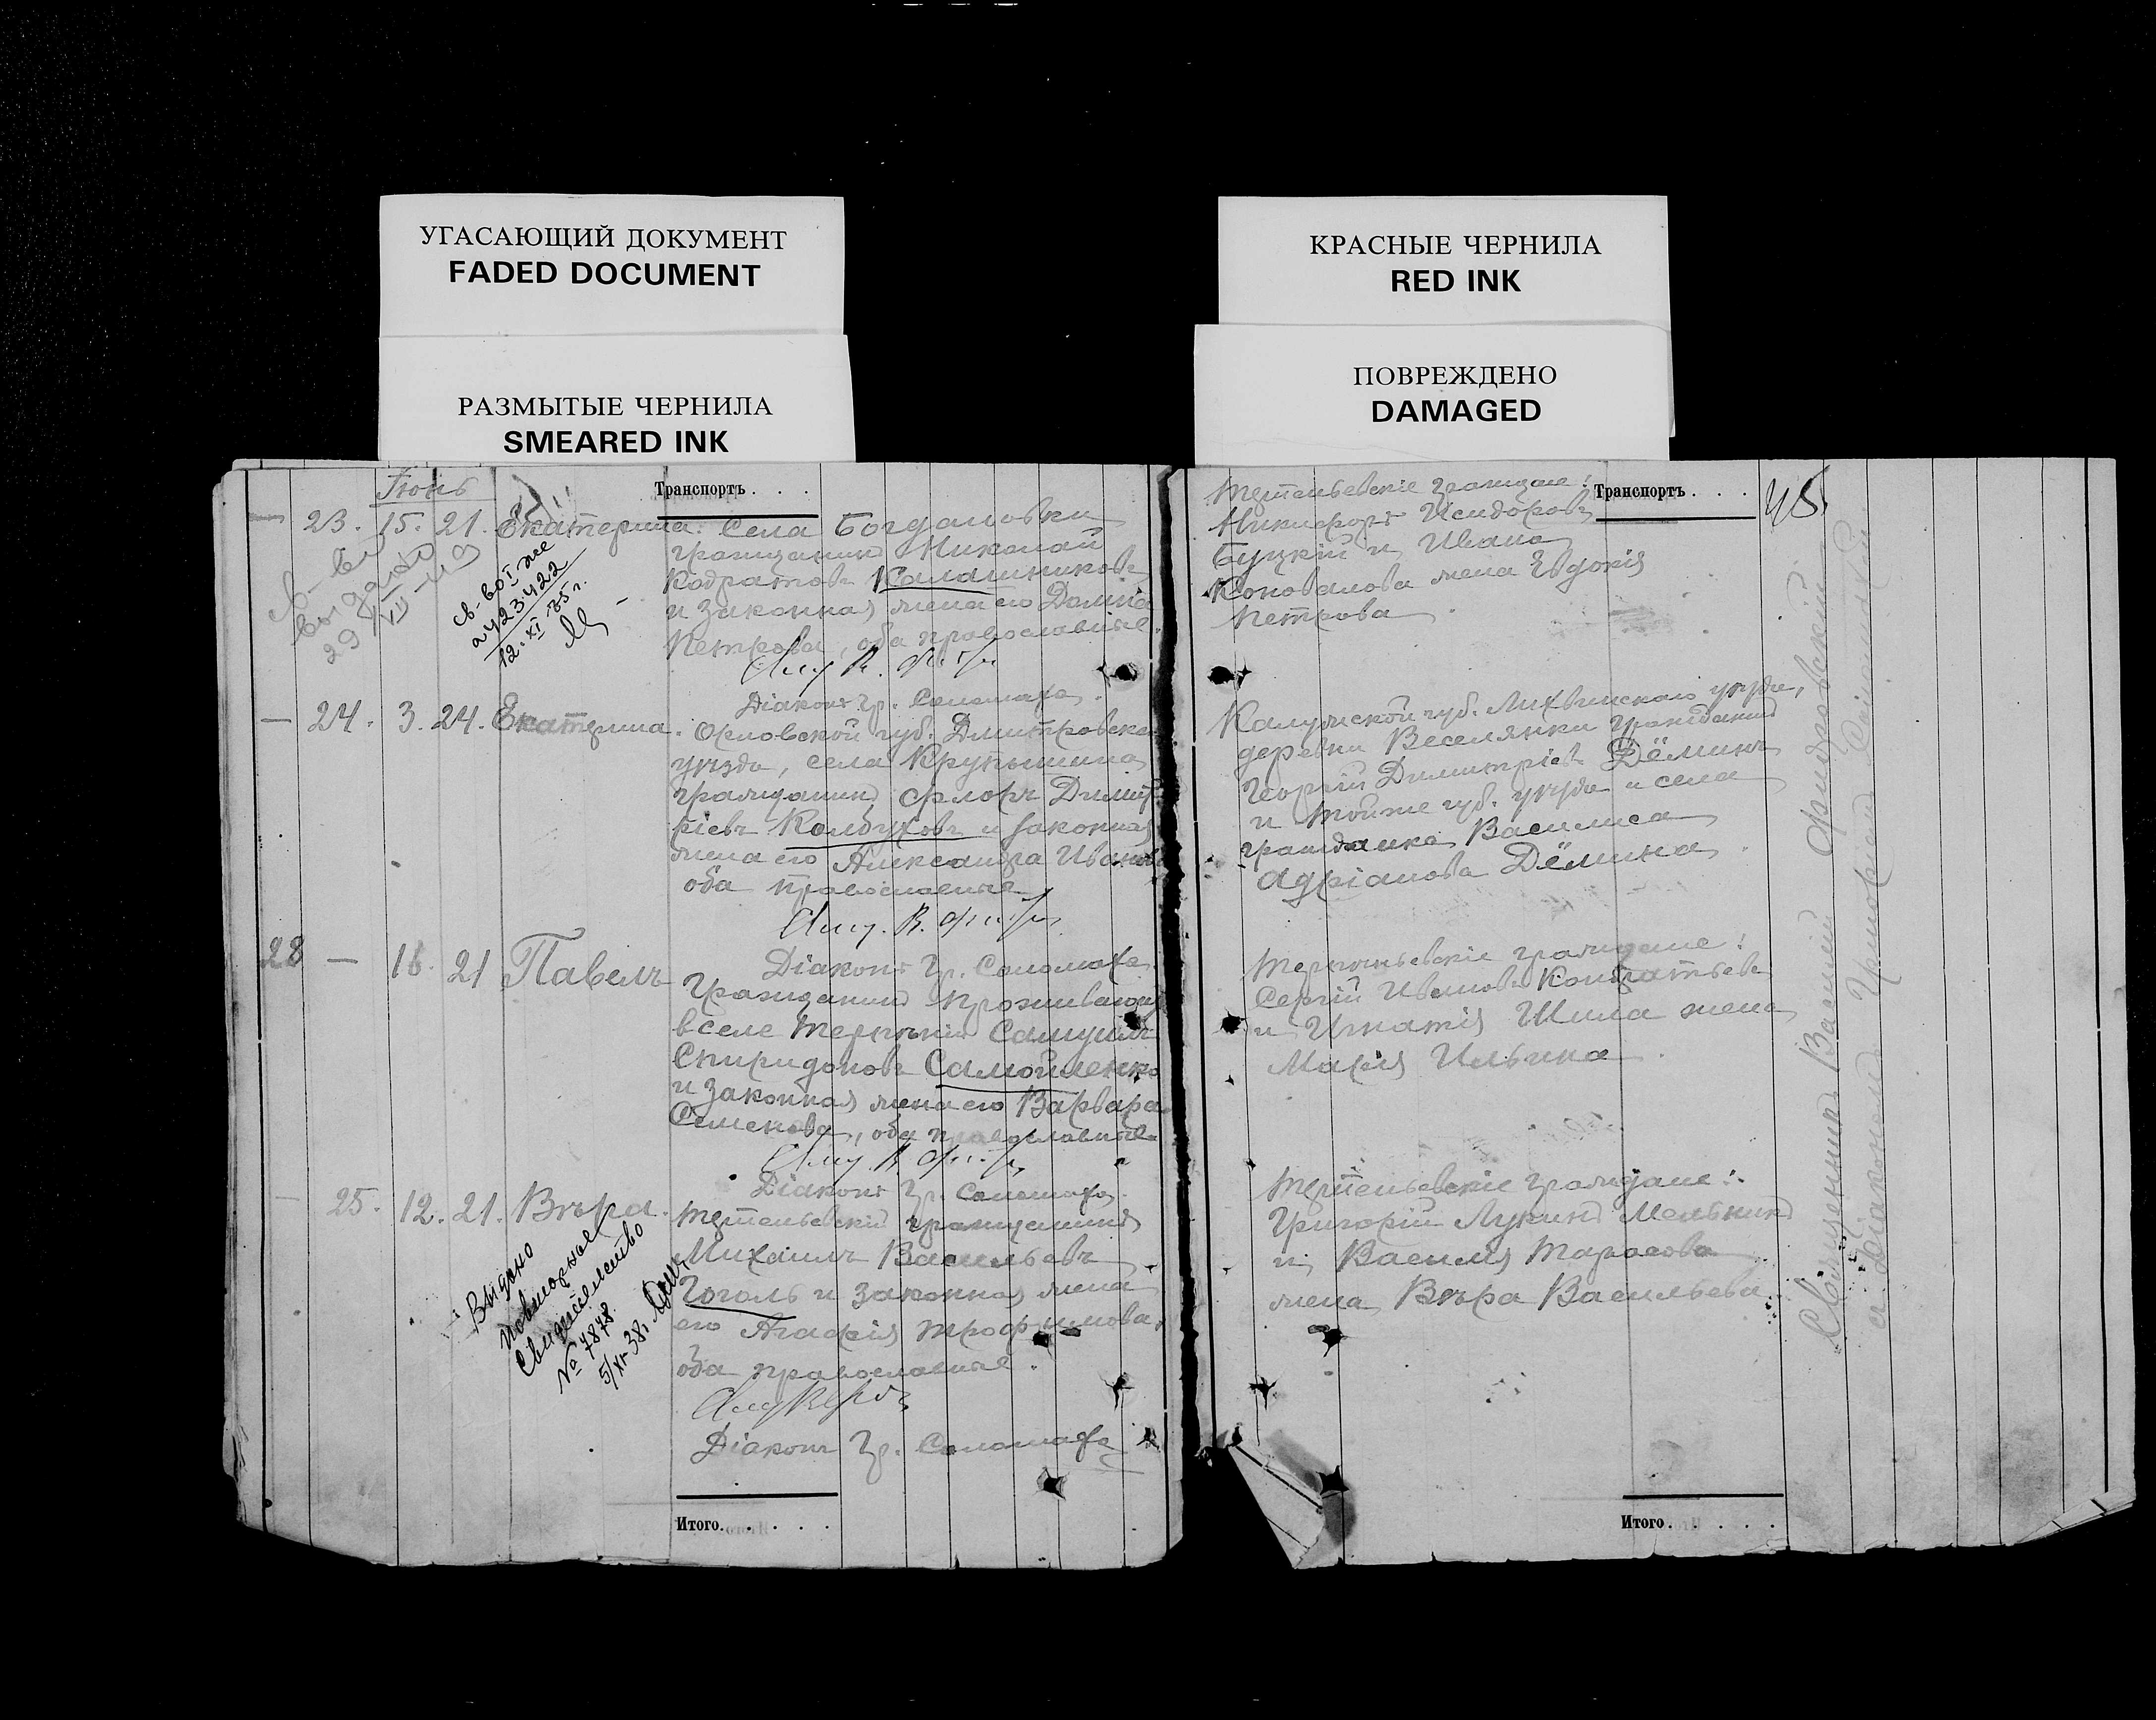 УГАСАЮЩИЙ ДОКУМЕНТ
FADED DOCUMENT
РАЗМЫТЫЕ ЧЕРНИЛА
SMEARED INK
КРАСНЫЕ ЧЕРНИЛА
RED INK
ПОВРЕЖДЕНО
DAMAGED
Іюнь
Транспортъ . . .
— 23. 15. 21. Екатерина. Села Богдановки
гражданинъ Николай
Кодратовъ Калашниковъ
и законная жена его Домна
Петрова, оба православные.
св-во
выдано
29
св-во же
ау 23422
12. XI 35 г.
Діаконъ Гр. Соломаха.
— 24. 3. 24. Екатерина. Орловской губ. Дмитровска
уѣзда, села Крупышина
гражданинъ Флоръ Димит
ріевъ Колбуховъ и законная
жена его Александра Иванов
оба православные
Діаконъ Гр. Соломаха
28 — 18. 21 Павелъ
Гражданинъ проживающ
в селе Самуилъ
Спиридоновъ Самойленко
и законная жена его Варвара
Семенова, оба православные.
Діаконъ Гр. Соломаха
— 25. 12. 21. Вѣра.
гражданинъ
Михаилъ Васильевъ
Гоголь и законная жена
его Агафія Трофимова,
оба православные.
Діаконъ Гр. Соломаха
Выдано
повторное
Свидетельство
№ 7878.
5/XI 38 г.
Итого. . . . .
Транспортъ . . .
граждане:
Никифоръ Исидоровъ
Буцкій и Ивана
Коновалова жена Евдокія
Петрова
45.
Калужской губ. Лихвинскаго уѣзда,
деревни Веселянки гражданинъ
Георгій Димитріевъ Дёминъ
и той же губ. уѣзда и села
гражданка Василиса
Адріанова Дёмина
граждане:
Сергій Ивановъ Кондратьевъ
и Игнатія Шила жена
Марія Ильина
граждане:
Григорій Лукинъ Мельникъ
и Василія Тарасова
жена Вѣра Васильева
Священникъ Василій
съ Діакономъ Григоріемъ
Итого. . . . .